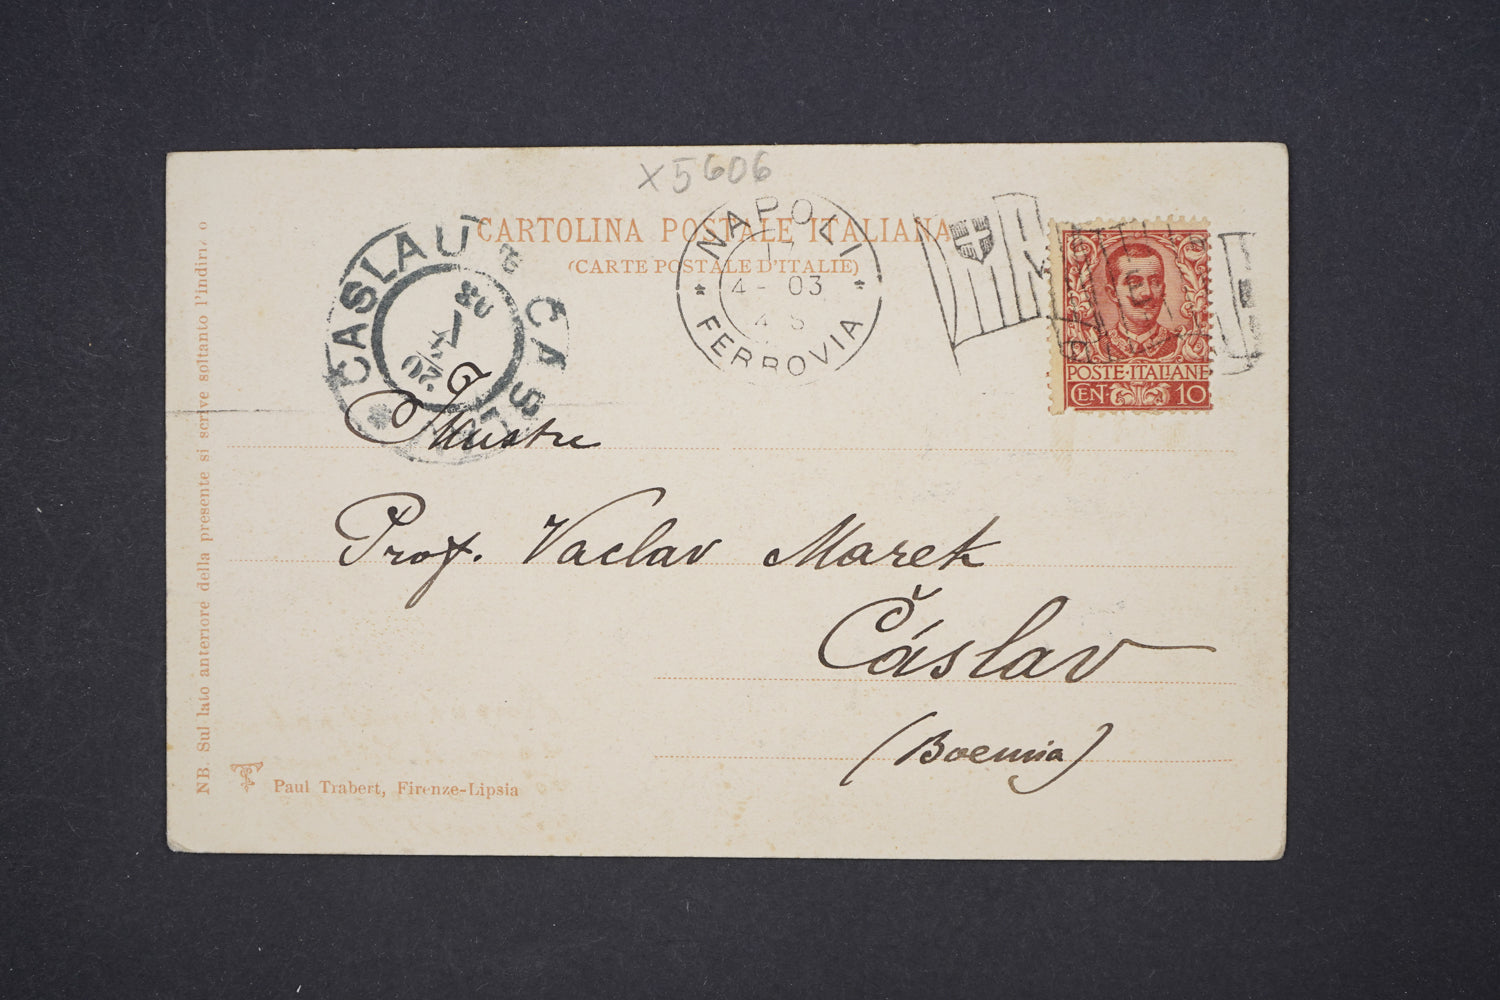 X5606
CARTOLINA POSTALE ITALIANA
(CARTE POSTALE D'ITALIE)
NAPOLI
17
4- 03
4 S
* FERROVIA *
CASLAU
ČÁSLAV
20
03
POSTE·ITALIANE
CEN· 10
Illustre
Prof. Vaclav Marek
Čáslav
(Boemia)
NB. Sul lato anteriore della presente si scrive soltanto l'indirizzo
Paul Trabert, Firenze-Lipsia